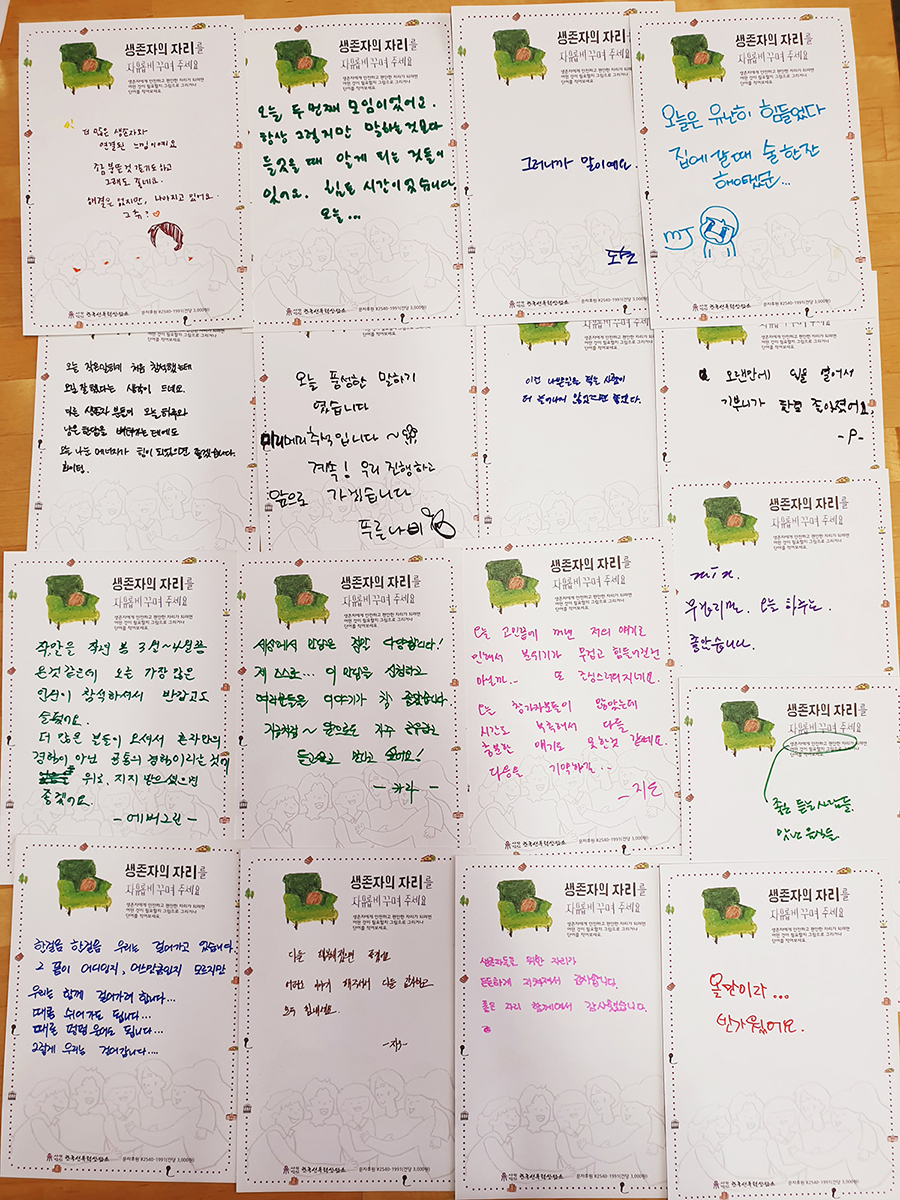 생존자의 자리를
자유롭게 꾸며 주세요
생존자에게 안전하고 편안한 자리가 되려면
어떤 것이 필요할지 그림으로 그리거나
단어를 적어보세요.
더 많은 생존자와
연결된 느낌이에요
조금 붕뜬 것 같기도 하고
그래도 좋네요.
해결은 없지만, 나아지고 있어요
그쵸?
한국성폭력상담소
문자후원 #2540-1991(건당 3,000원)
생존자의 자리를
자유롭게 꾸며 주세요
생존자에게 안전하고 편안한 자리가 되려면
어떤 것이 필요할지 그림으로 그리거나
단어를 적어보세요.
오늘 두번째 모임이었어요.
항상 그렇지만 말하는 것보다
들었을 때 알게 되는 것들이
있어요. 힘든 시간이 있습니다
오늘...
한국성폭력상담소
문자후원 #2540-1991(건당 3,000원)
생존자의 자리를
자유롭게 꾸며 주세요
생존자에게 안전하고 편안한 자리가 되려면
어떤 것이 필요할지 그림으로 그리거나
단어를 적어보세요.
그러니까 말이예요.
한국성폭력상담소
문자후원 #2540-1991(건당 3,000원)
생존자의 자리를
자유롭게 꾸며 주세요
생존자에게 안전하고 편안한 자리가 되려면
어떤 것이 필요할지 그림으로 그리거나
단어를 적어보세요.
오늘은 유난히 힘들었다
집에 갈 때 술 한잔
해야겠군...
MJ
한국성폭력상담소
문자후원 #2540-1991(건당 3,000원)
오늘 작은말하기 처음 참석했는데
오길 잘했다는 생각이 드네요.
다른 생존자 분들이 오늘 하루와
남은 한달을 버텨가는데에도
오늘 나눈 에너지가 힘이 되었으면 좋겠습니다.
화이팅.
오늘 풍성한 말하기
였습니다
미리미리 추석입니다~
계속! 우리 진행하고
앞으로 가겠습니다
푸른나비
어떤 것이 필요할지 그림으로 그리거나
단어를 적어보세요.
이런 나쁜일을 겪는 사람이
더 늘어나지 않았으면 좋겠다.
어떤 것이 필요할지 그림으로 그리거나
단어를 적어보세요.
오랜만에 입을 열어서
기분이가 한결 좋아졌어요.
-P-
생존자의 자리를
자유롭게 꾸며 주세요
생존자에게 안전하고 편안한 자리가 되려면
어떤 것이 필요할지 그림으로 그리거나
단어를 적어보세요.
오늘 하루는
좋았습니다.
생존자의 자리를
자유롭게 꾸며 주세요
생존자에게 안전하고 편안한 자리가 되려면
어떤 것이 필요할지 그림으로 그리거나
단어를 적어보세요.
작말을 작년 봄 3월~4월쯤
온것같은데 오늘 가장 많은
인원이 참석하셔서 반갑고도
슬펐어요.
더 많은 분들이 오셔서 혼자만의
경험이 아닌 공통의 경험이라는 것에
위로, 지지 받으셨으면
좋겠어요.
- 에버그린 -
생존자의 자리를
자유롭게 꾸며 주세요
생존자에게 안전하고 편안한 자리가 되려면
어떤 것이 필요할지 그림으로 그리거나
단어를 적어보세요.
세상에서 만남은 정말 다양합니다!
제 스스로... 이 만남을 신청하고
여러분들을 이야기가 참 좋았습니다
지금처럼~ 앞으로도 자주
싶어요!
생존자의 자리를
자유롭게 꾸며 주세요
생존자에게 안전하고 편안한 자리가 되려면
어떤 것이 필요할지 그림으로 그리거나
단어를 적어보세요.
오늘 고민끝에 꺼낸 저의 얘기로
인해서 분위기가 무겁고 힘든
아닐까.. 또 조심스러워지네요.
오늘 참가자분들이 많았는데
시간도 부족해서 다들
충분한 얘기도 못한것 같네요.
다음을 기약하길..
한국성폭력상담소
문자후원 #2540-1991(건당 3,000원)
생존자의 자리를
자유롭게 꾸며 주세요
생존자에게 안전하고 편안한 자리가 되려면
어떤 것이 필요할지 그림으로 그리거나
단어를 적어보세요.
좋은 듣는 사람들.
생존자의 자리를
자유롭게 꾸며 주세요
생존자에게 안전하고 편안한 자리가 되려면
어떤 것이 필요할지 그림으로 그리거나
단어를 적어보세요.
한걸음 한걸음 우리는 걸어가고 있습니다
그 끝이 어디인지, 어느만큼인지 모르지만
우리는 함께 걸어가려 합니다...
때론 쉬어가도 됩니다...
때론 펑펑 울어도 됩니다...
그렇게 우리는 걸어갑니다....
한국성폭력상담소
문자후원 #2540-1991(건당 3,000원)
생존자의 자리를
자유롭게 꾸며 주세요
생존자에게 안전하고 편안한 자리가 되려면
어떤 것이 필요할지 그림으로 그리거나
단어를 적어보세요.
한국성폭력상담소
문자후원 #2540-1991(건당 3,000원)
생존자의 자리를
자유롭게 꾸며 주세요
생존자에게 안전하고 편안한 자리가 되려면
어떤 것이 필요할지 그림으로 그리거나
단어를 적어보세요.
생존자들을 위한 자리가
든든하게 지켜져서 감사합니다.
좋은 자리 함께여서 감사했습니다.
한국성폭력상담소
문자후원 #2540-1991(건당 3,000원)
생존자의 자리를
자유롭게 꾸며 주세요
생존자에게 안전하고 편안한 자리가 되려면
어떤 것이 필요할지 그림으로 그리거나
단어를 적어보세요.
올만이라...
반가웠어요.
한국성폭력상담소
문자후원 #2540-1991(건당 3,000원)